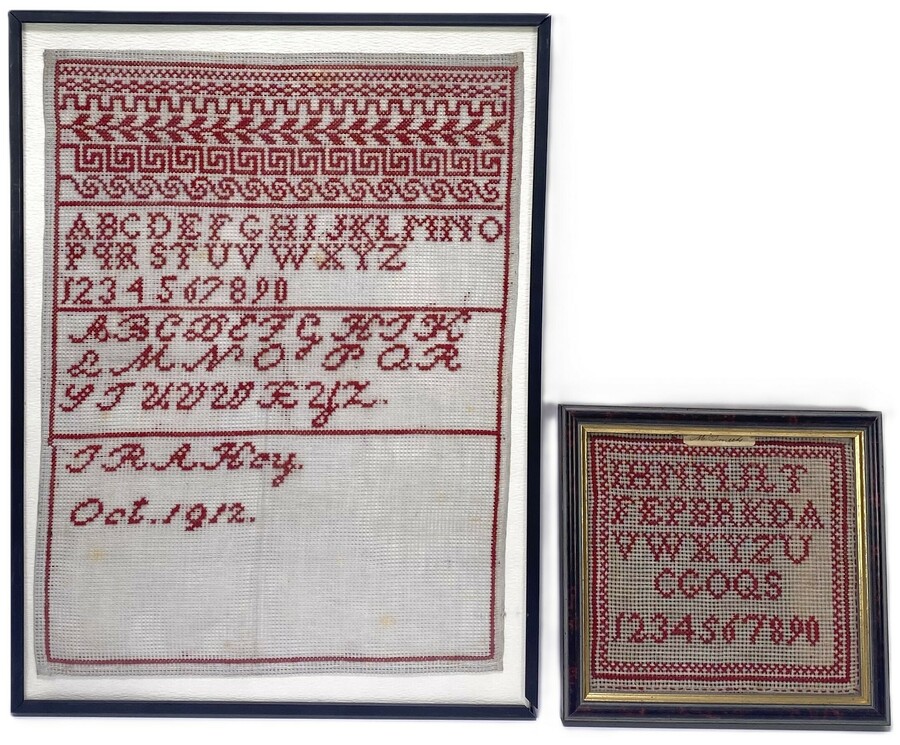 ABCDEFGHIJKLMNO
PQRSTUVWXYZ
1234567890
ABCDEFGHIK
LMNOPQR
STUVWXYZ.
I R A Hoy.
Oct. 1912.
FEPBRKDA
VWXYZU
CGOQS
1234567890